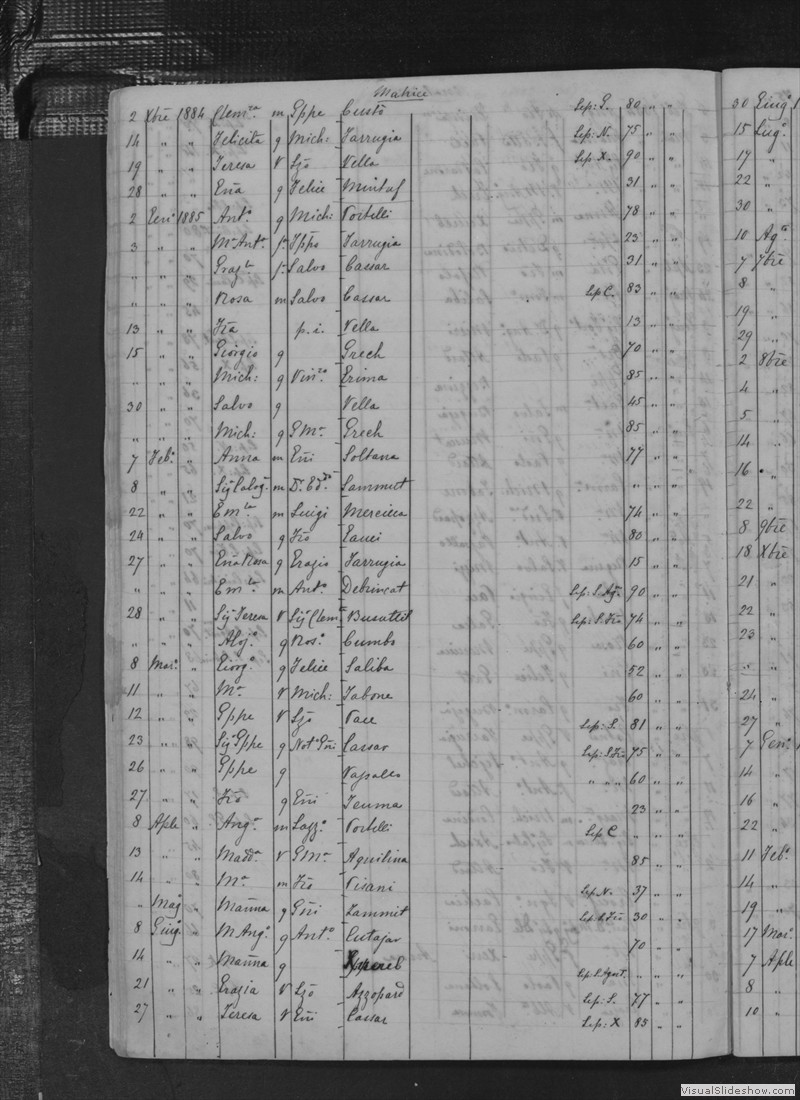 Matrice
2 Xbre 1884 Clem.za m Gppe Custo Sep: G. 80 " "
14 " " Felicita g Mich: Farrugia Sep: N. 75 " "
19 " " Teresa V Lzo Vella Sep: X. 90 " "
28 " " Ena g Felice Mintuf 31 " "
2 Gen: 1885 Ant.o g Mich: Portelli 78 " "
3 " " Mr Ant.a f. Gppe Farrugia 23 " "
" " " Graz.la f. Salvo Cassar 31 " "
Rosa m Salvo Cassar Sep C. 83 " "
13 " " Fra p. i. Vella 13 " "
15 " " Giorgio g Grech 70 " "
" " Mich: g Vin.zo Grima 85 " "
30 " " Salvo g Vella 45 " "
" " " Mich: g G Mr Grech 85 " "
7 Feb.o " Anna m Eni Soltana 77 " "
8 " " m Dr Ed.do Sammut " " "
22 " " Em.la m Luigi Mercieca 74 " "
24 " " Salvo g Fro Gauci 80 " "
27 " " Ena Rosa g Grazio Farrugia 15 " "
" " " Em.la m Ant.o Debrincat 90 " "
28 " " Sig Teresa V Sig Clem.te Busuttil Sep: S. Fro 74 " "
" " " Aloj.o g Ros.o Cumbo 60 " "
8 Mar.o " Giorg.o g Felice Saliba 52 " "
11 " " Mr V Mich: Tabone 60 " "
12 " " Gppe V Lzo Pace Sep: S. 81 " "
23 " " Sig Gppe g Not Gni Cassar Sep: S. Fro 75 " "
26 " " Gppe g Vassallo " " " 60 " "
27 " " Fro g Eni Teuma 23 " "
8 Aple " Ang.a m Lazz.o Portelli Sep C " " "
13 " " Madd.a V G Mr Aquilina 85 " "
14 " " Mr m Fro Pisani Sep N. 37 " "
" Mag " Marina g Gni Zammit Sep: S. Fro 30 " "
8 Giug.o " M Ang.a g Ant.o Cutajar 70 " "
14 " " Marina g Sep S. Agost. " " "
21 " " Grazia V Lzo Azzopard Sep: S. 77 " "
27 " " Teresa V Eni Cassar Sep: X 85 " "
30 Giug.o 1
15 Lug.o
17 "
22 "
30 "
10 Ag.to
7 7bre
8 "
19 "
29 "
2 8bre
4 "
5 "
14 "
16 "
22 "
8 9bre
18 Xbre
21 "
22 "
23 "
" "
24 "
27 "
7 Gen: 1
14 "
16 "
22 "
11 Feb.o
14 "
19 "
17 Mar.o
7 Aple
8 "
10 "
VisualSlideshow.com